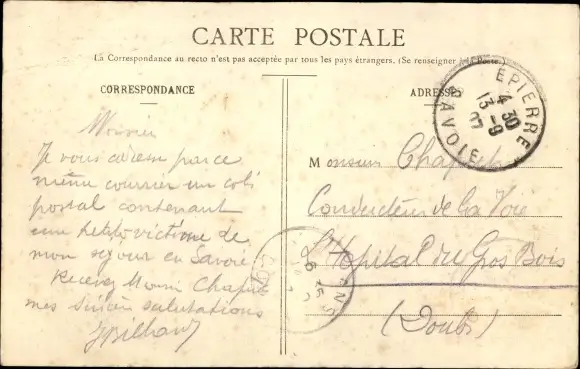 CARTE POSTALE
La Correspondance au recto n'est pas acceptée par tous les pays étrangers. (Se renseigner à la Poste.)
CORRESPONDANCE
Monsieur
Je vous adresse par ce
même courrier un coli
postal contenant
une petite victime de
mon séjour en Savoie
Recevez Monsieur Chapuis
mes sincères salutations
ADRESSE
EPIERRE
SAVOIE
4 30
13 -9
Monsieur Chapuis
Conducteur de la Voie
L'Hopital du Gros Bois
(Doubs)